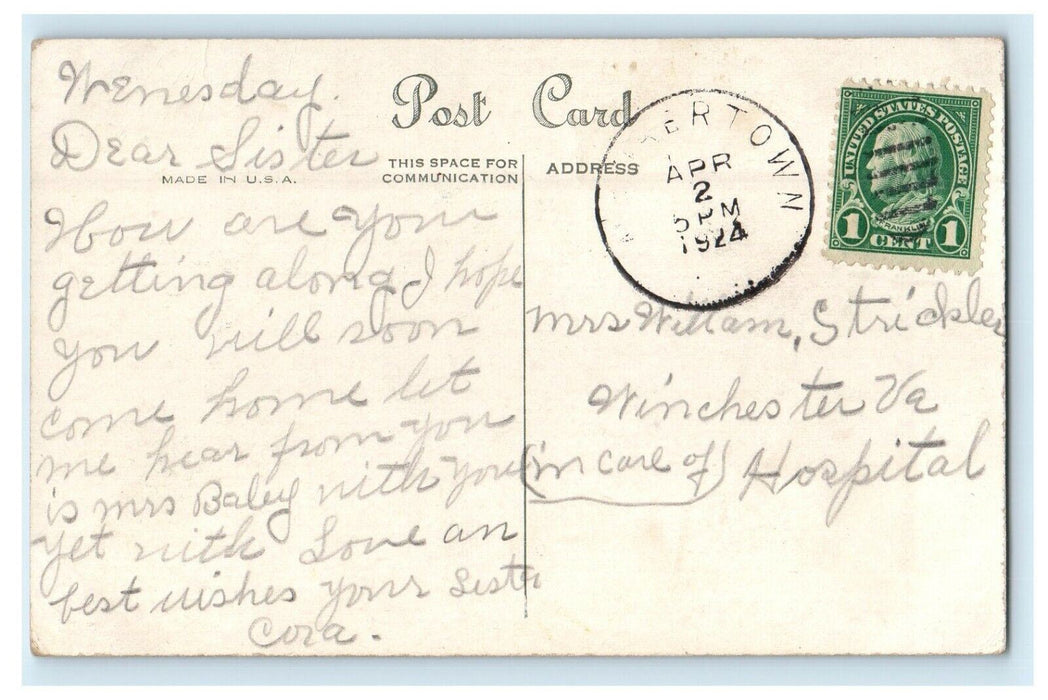 Wenesday.
Dear Sister
How are you
getting along I hope
you will soon
come home let
me hear from you
is mrs Baley with you
yet with Love an
best wishes your Sister
Cora.
Post Card
THIS SPACE FOR
COMMUNICATION
ADDRESS
MADE IN U.S.A.
ERTOWN
APR
2
5 PM
1924
UNITED STATES POSTAGE
FRANKLIN
1 CENT 1
mrs William, Strickler
Winchester Va
(in care of) Hospital